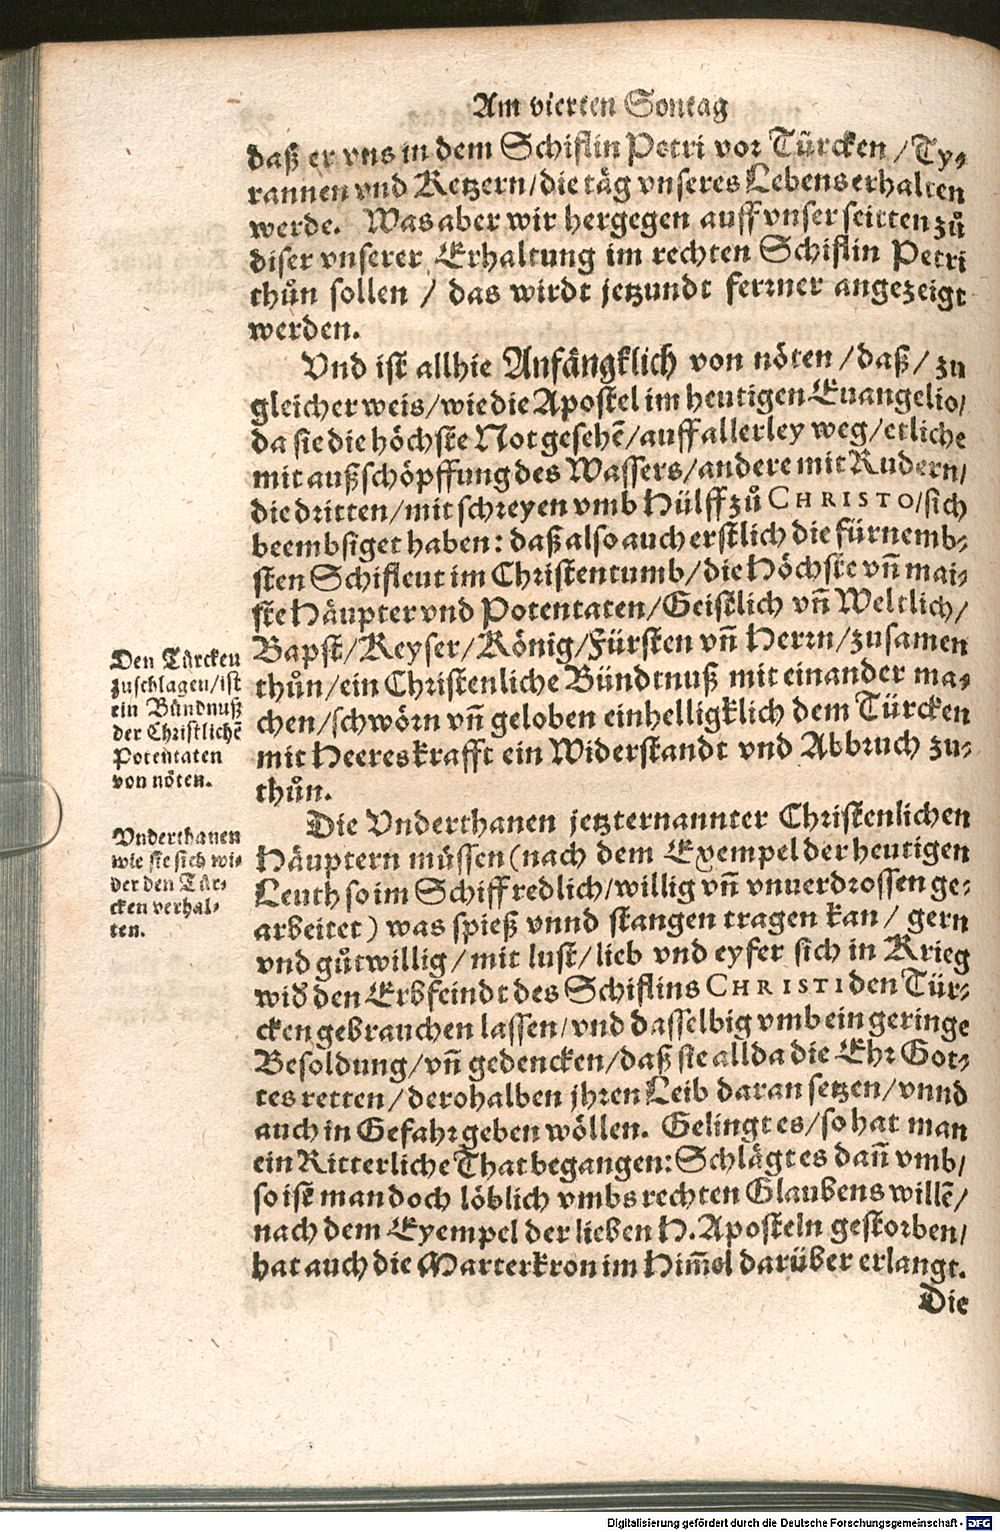 Am vierten Sontag
daß er vns in dem Schiflin Petri vor Türcken / Ty-
rannen vnd Ketzern/die täg vnseres Lebens erhalten
werde. Was aber wir hergegen auff vnser seitten zů
diser vnserer Erhaltung im rechten Schiflin Petri
thůn sollen / das wirdt jetzundt ferrner angezeigt
werden.
Vnd ist allhie Anfängklich von nöten /daß/ zu
gleicher weis/wie die Apostel im heutigen Euangelio/
da sie die höchste Not gesehẽ/auff allerley weg/etliche
mit außschöpffung des Wassers/andere mit Rudern/
die dritten/mit schreyen vmb Hülff zů CHRISTO/sich
beembsiget haben: daß also auch erstlich die fürnemb-
sten Schifleut im Christentumb/die Höchste vñ mai-
ste Häupter vnd Potentaten/Geistlich vñ Weltlich/
Bapst/Keyser/König/Fürsten vñ Herrn/zusamen
thůn/ein Christenliche Bündtnuß mit einander ma-
chen/schwörn vñ geloben einhelligklich dem Türcken
mit Heereskrafft ein Widerstandt vnd Abbruch zu-
thůn.
Den Türcken
zuschlagen/ist
ein Bündnuß
der Christlichẽ
Potentaten
von nöten.
Die Vnderthanen jetzternannter Christenlichen
Häuptern müssen (nach dem Exempel der heutigen
Leuth so im Schiff redlich/willig vñ vnuerdrossen ge-
arbeitet) was spieß vnnd stangen tragen kan / gern
vnd gůtwillig/mit lust/lieb vnd eyfer sich in Krieg
wid̃ den Erbfeindt des Schiflins CHRISTI den Tür-
cken gebrauchen lassen/vnd dasselbig vmb ein geringe
Besoldung/vñ gedencken/daß sie allda die Ehr Got-
tes retten/derohalben jhren Leib daran setzen/vnnd
auch in Gefahr geben wöllen. Gelingt es/so hat man
ein Ritterliche That begangen: Schlägt es dañ vmb/
so ist man doch löblich vmbs rechten Glaubens willẽ/
nach dem Exempel der lieben H. Aposteln gestorben/
hat auch die Marterkron im Him̃el darüber erlangt.
Vnderthanen
wie sie sich wi-
der den Tür-
cken verhal-
ten.
Die
Digitalisierung gefördert durch die Deutsche Forschungsgemeinschaft - DFG